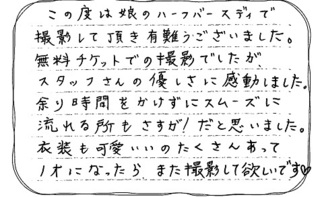 この度は娘のハーフバースディで
撮影して頂き有難うございました。
無料チケットでの撮影でしたが、
スタッフさんの優しさに感動しました。
余り時間をかけずにスムーズに
流れる所もさすが!だと思いました。
衣装も可愛いいのたくさんあって
1才になったら また撮影して欲しいです♡